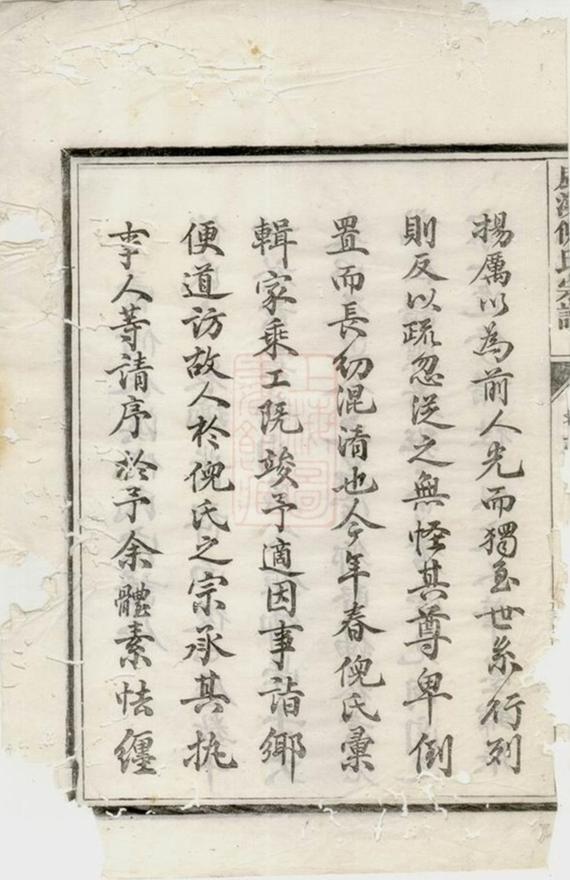 揚厲以為前人光而獨至世系行列
則反以疏忽從之無怪其尊卑倒
置而長幼混淆也今年春倪氏彙
輯家乘工既竣予適因事詣鄉
便道訪故人於倪氏之宗承其執
事人等請序於予余體素怯纏
倪氏宗譜